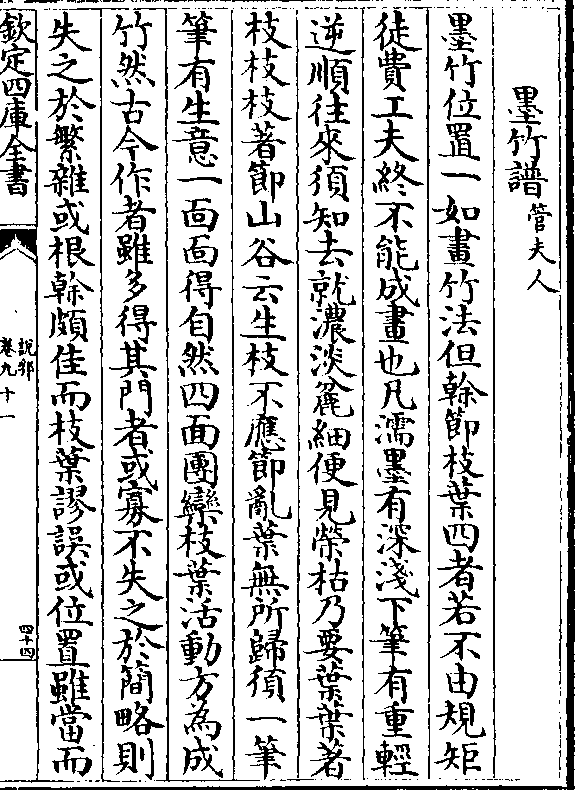 墨竹譜 管夫人
墨竹位置一如畫竹法但榦節枝葉四者若不由規矩
徒費工夫終不能成畫也凡濡墨有深淺下筆有重輕
逆順往來須知去就濃淡麄細便見榮枯乃要葉葉著
枝枝枝著節山谷云生枝不應節亂葉無所歸須一筆
筆有生意一面面得自然四面團欒枝葉活動方為成
竹然古今作者雖多得其門者或寡不失之於簡略則
失之於繁雜或根榦頗佳而枝葉謬誤或位置雖當而
欽定四庫全書
說郛
卷九十一
四十四